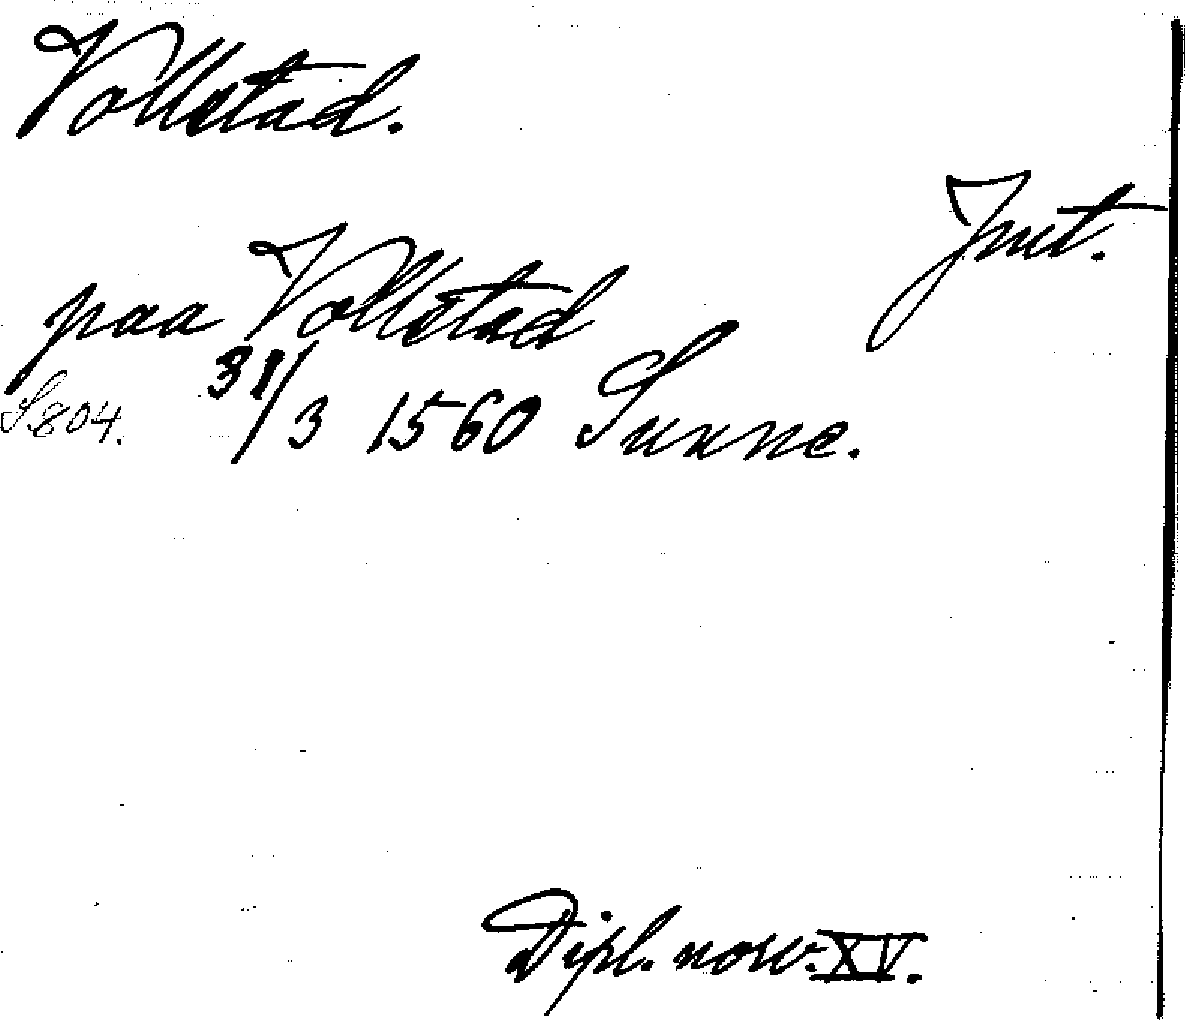 Vollstad.
Jmt.
paa Vollstad
S. 804. 31/3 1560 Sunne.
Dipl. norv. XV.